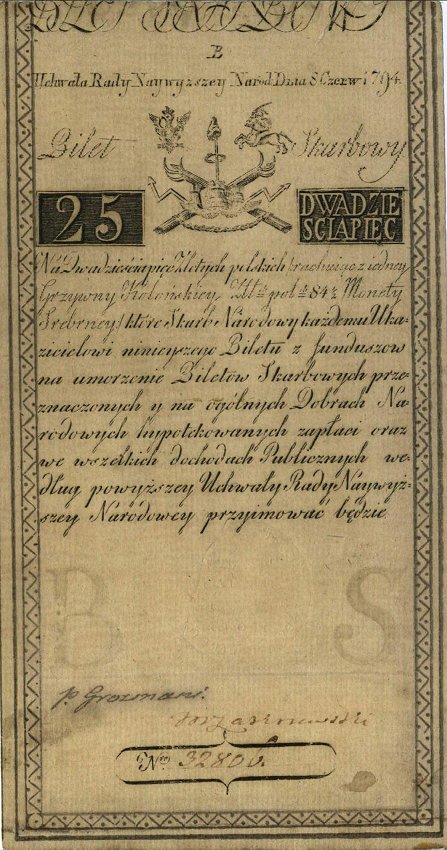 B
Uchwała Rady Naywyzszey Narod: Dnia 8 Czerw: 1794.
Bilet Skarbowy
25 DWADZIE
SCIAPIEC
Na Dwadzieściapięć Złotych polskich (rachuiąc z iedney
Grzywny Kolońskiey Zł: pol: 84½ Monety
Srebrney) które Skarb Narodowy każdemu Uka-
zicielowi ninieyszego Biletu z funduszow
na umorzenie Biletów Skarbowych prze-
znaczonych y na ogólnych Dobrach Na-
rodowych hypotekowanych zapłaci oraz
we wszelkich dochodach Publicznych we-
dług powyższey Uchwały Rady Naywyż-
szey Narodowey przyimować będzie
B S
P. Grozmani.
Nro 32806.